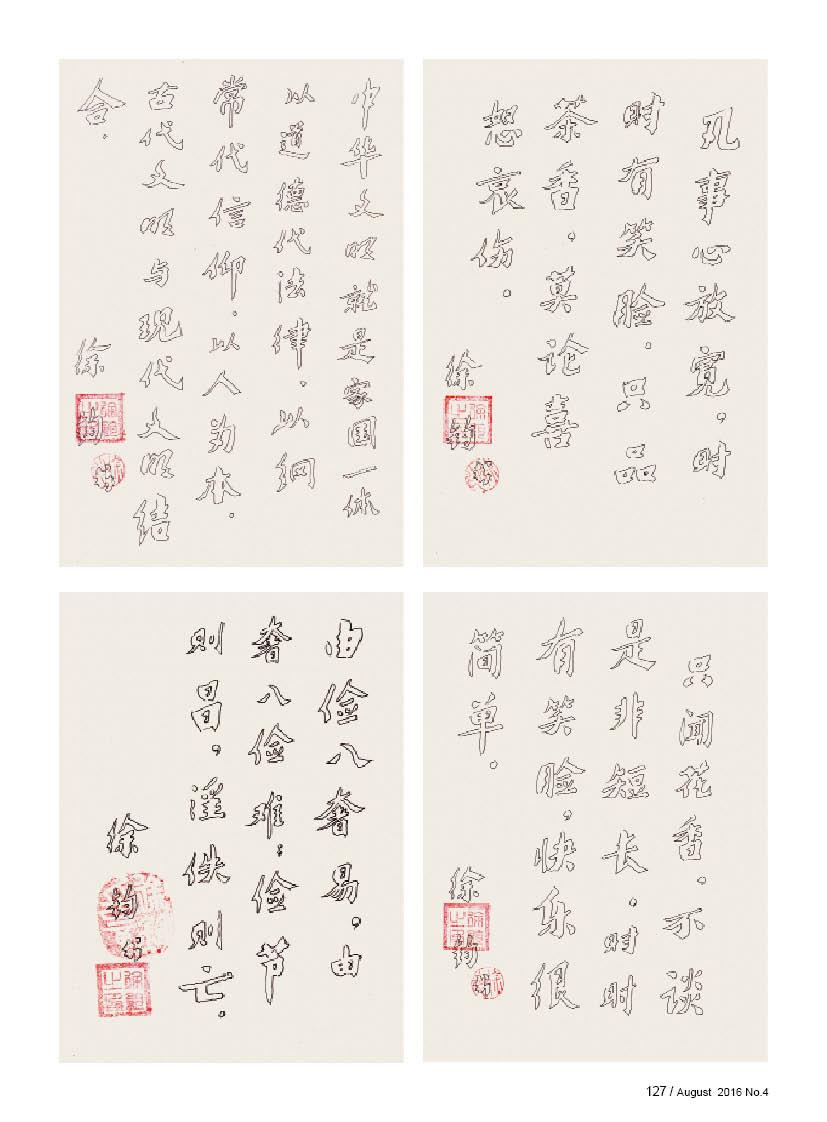 中华文明就是家国一体
以道德代法律、以纲
常代信仰、以人为本.
古代文明与现代文明结
合.
徐
凡事心放宽,时
时有笑脸.只品
茶香,莫论喜
怒哀伤.
徐
由俭入奢易,由
奢入俭难;俭节
则昌,淫佚则亡.
徐
只闻花香.不谈
是非短长,时时
有笑脸,快乐很
简单.
徐
127 / August 2016 No.4